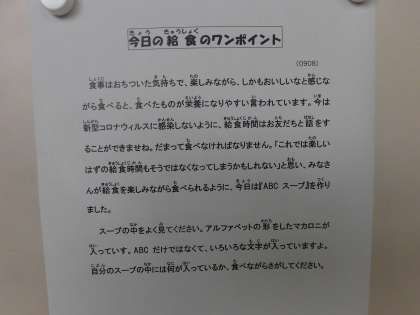 今日の給食のワンポイント
(0908)
食事はおちついた気持ちで、楽しみながら、しかもおいしいなと感じな
がら食べると、食べたものが栄養になりやすい言われています。今は
新型コロナウィルスに感染しないように、給食時間はお友だちと話をす
ることができませね。だまって食べなければなりません。「これでは楽しい
はずの給食時間もそうではなくなってしまうかもしれない」と思い、みなさ
んが給食を楽しみながら食べられるように、今日は『ABC スープ』を作り
ました。
スープの中をよく見てください。アルファベットの形をしたマカロニが
入っていす。ABC だけではなくて、いろいろな文字が入っていますよ。
自分のスープの中には何が入っているか、食べながらさがしてください。